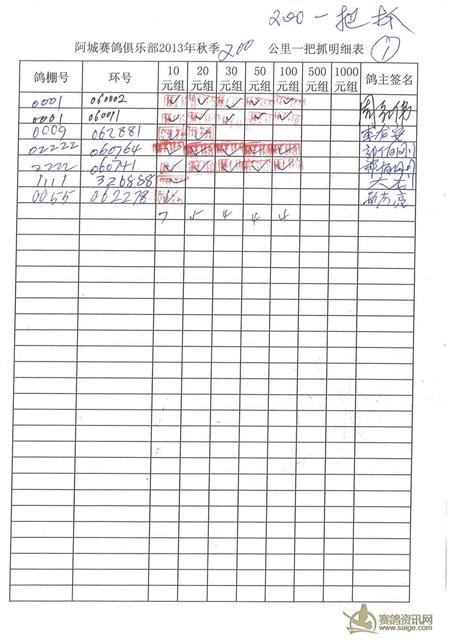 200 一把抓
阿城赛鸽俱乐部2013年秋季200 公里一把抓明细表 ①
鸽棚号 环号 10元组 20元组 30元组 50元组 100元组 500元组 1000元组 鸽主签名
0001 060002 ✓ ✓ ✓ ✓ ✓
0001 060011 ✓ ✓ ✓ ✓ ✓
0009 062881
02222 060764
2222 060741 ✓ ✓ ✓ ✓ ✓
1111 326888
0055 062278
7 5 4 4 4
赛鸽资讯网
www.saige.com